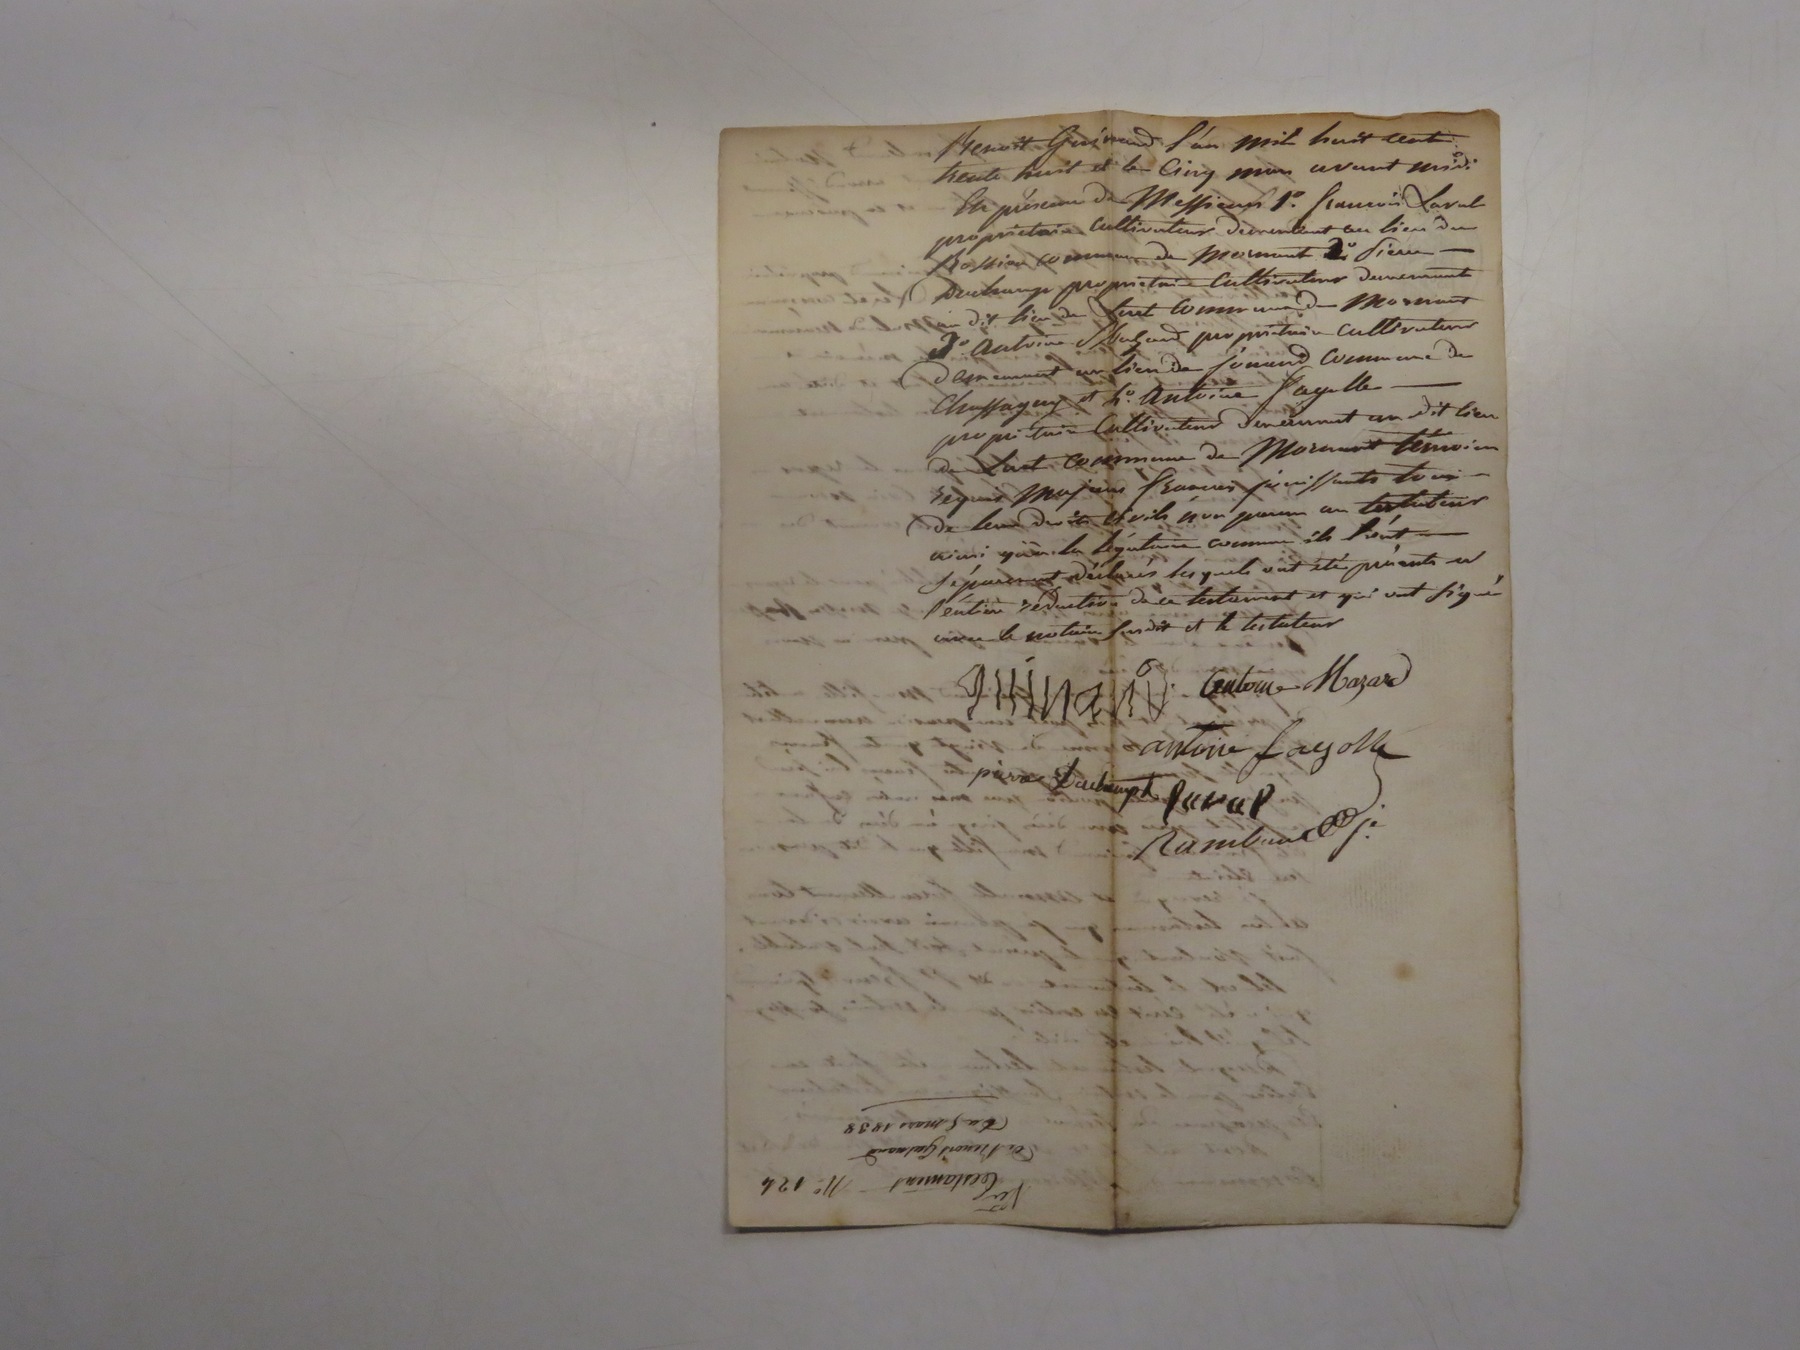 Benoit Guinand l'an mil huit cent
trente huit et le cinq mars avant midi
En présence de Messieurs 1º. francois Laval
proprietaire cultivateur demeurant au lieu du
Rossian commune de Mornant 2º pierre —
Duchamp proprietaire cultivateur demeurant
au dit lieu de Lust commune de Mornant
3º Antoine Mazard proprietaire cultivateur
demeurant au lieu de commune de
Chassagny et 4º. Antoine Fayolle —
proprietaire cultivateur demeurant au dit lieu
de Lust commune de Mornant témoins
requis majeurs francais jouissants tous —
de leur droits civils non parens au testateur
ainsi qu'à la légataire comme ils l'ont —
séparement déclarés lesquels ont été présents a
l'entière rédaction de ce testament et qui ont signé
avec le notaire susdit et le testateur
Antoine Mazard
antoine fayolle
pierre Duchamp
Laval
Rambaud
Testament Nº. 124
de Benoit Guinand
Du 5 mars 1838